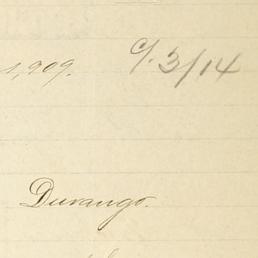 1,909. C/. 3/14
Durango.